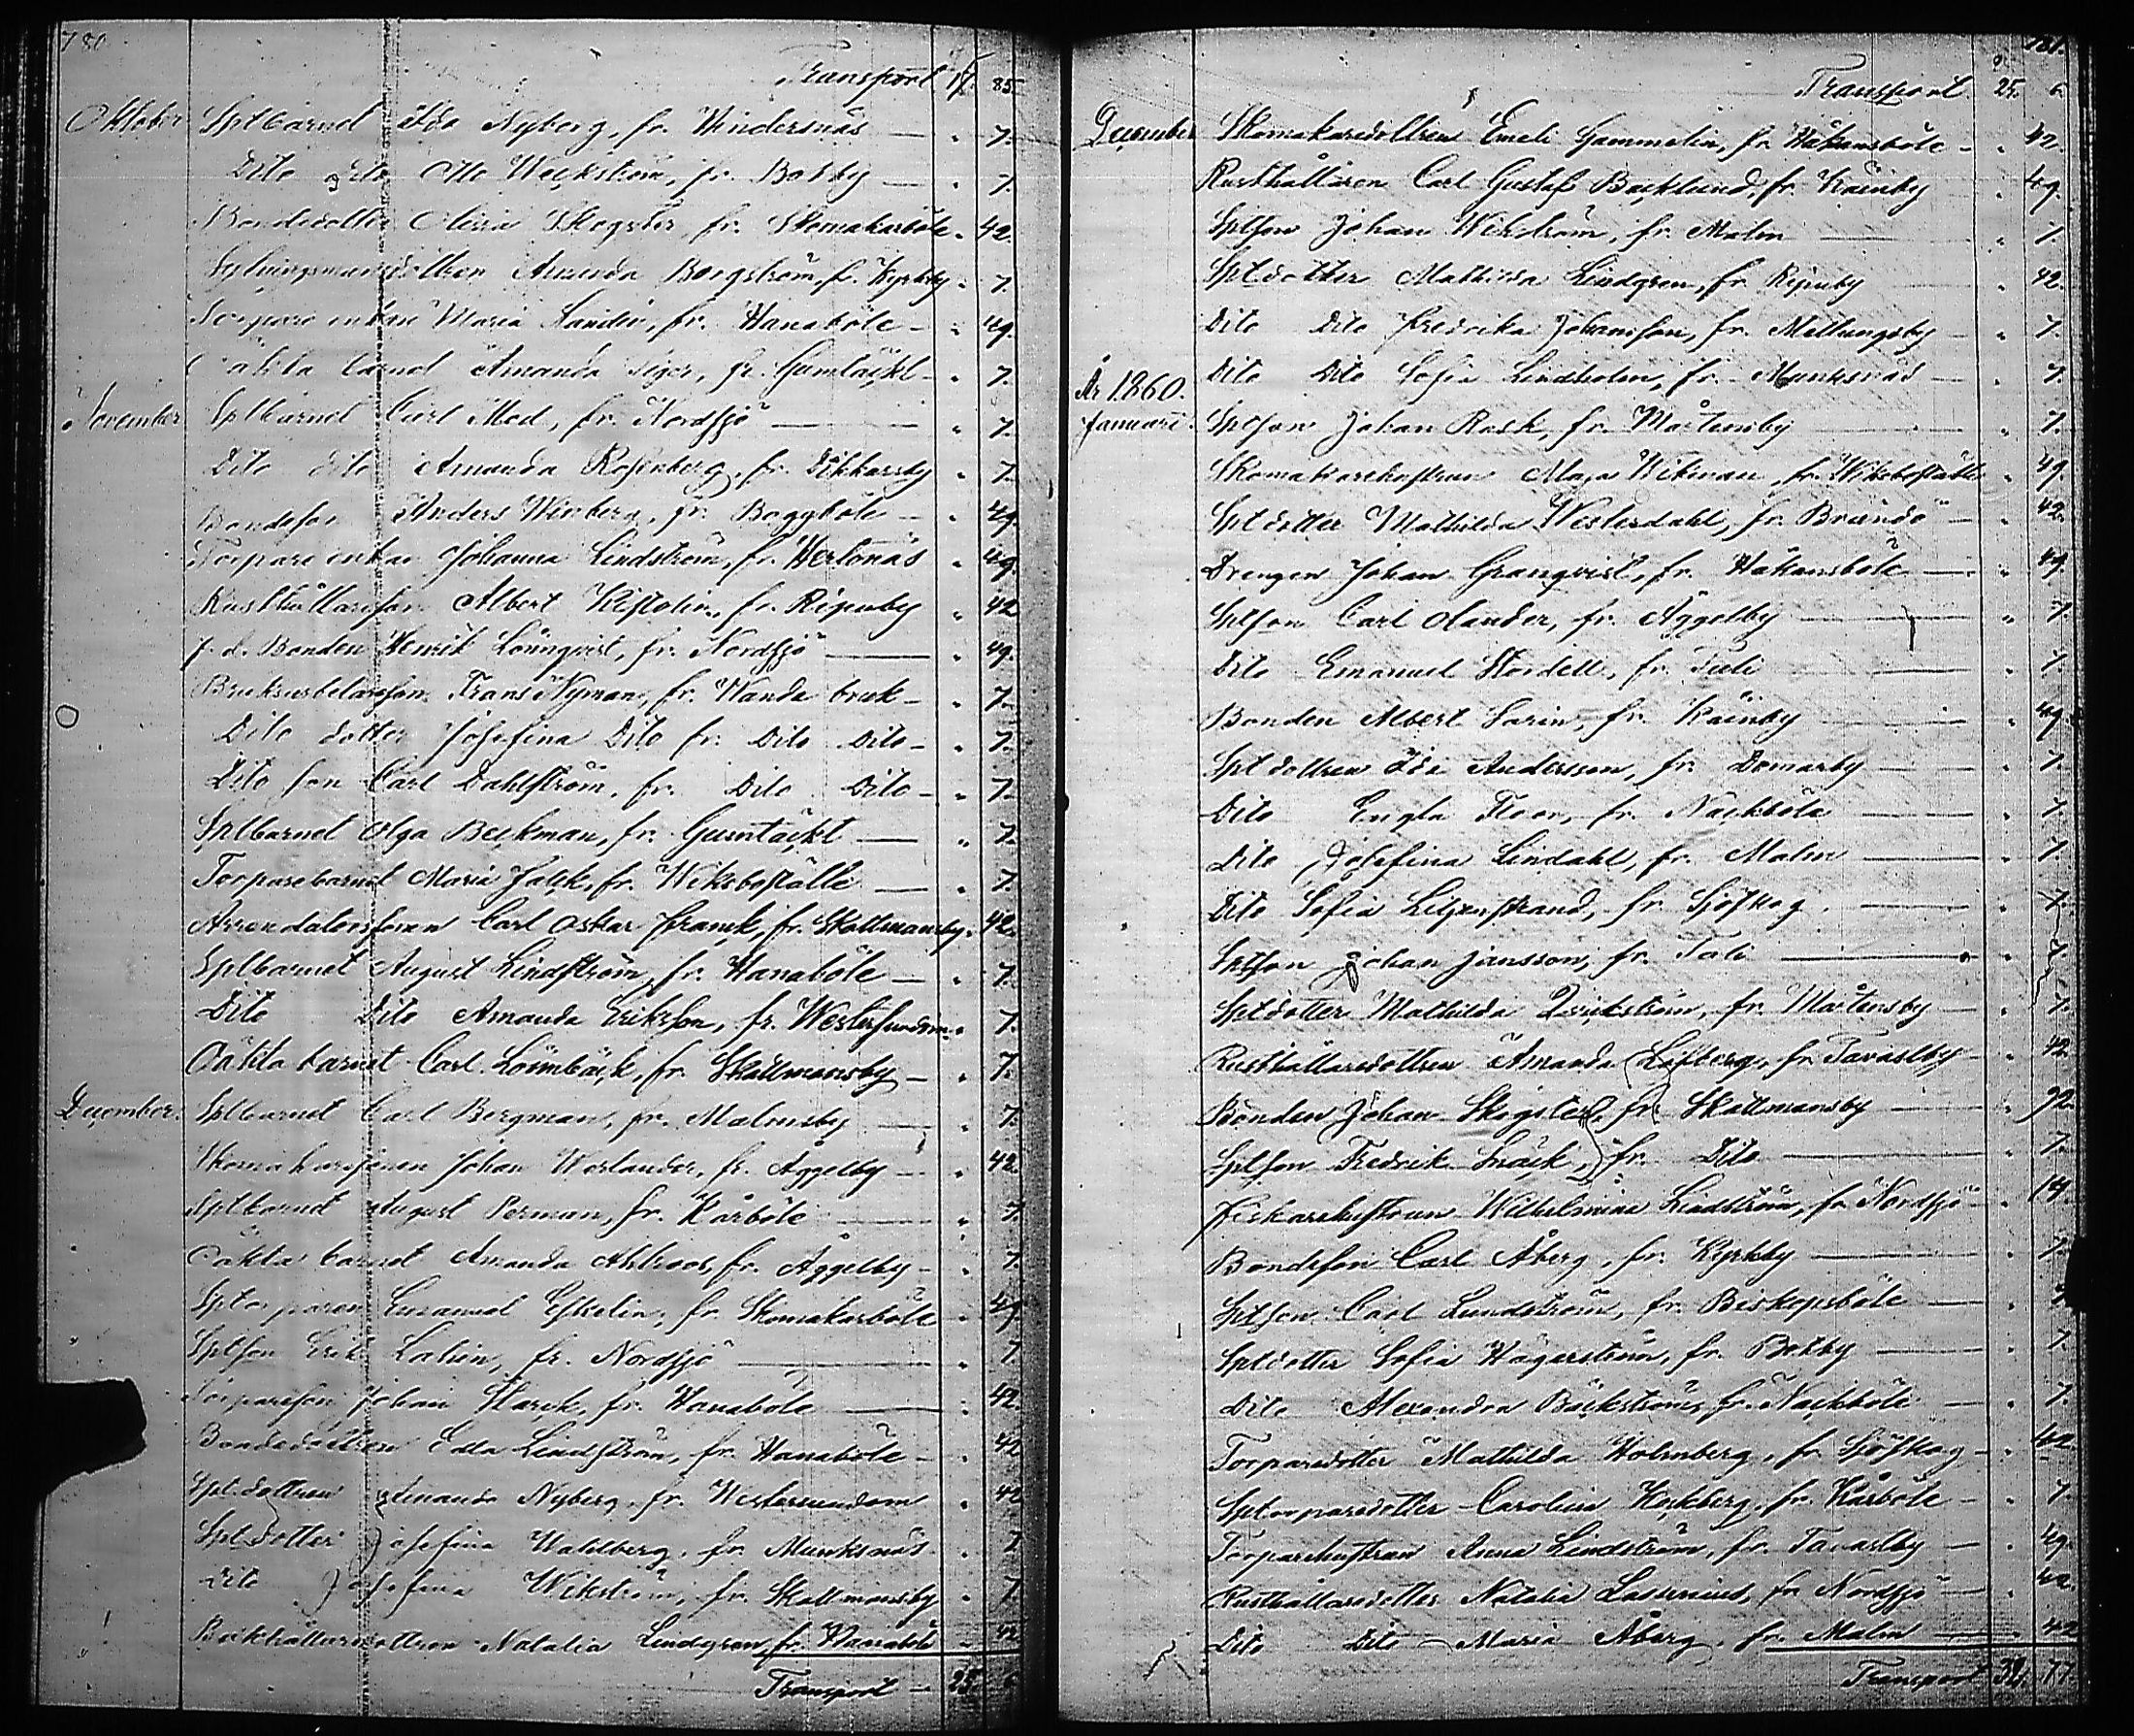 780
Transport 17. 85.
Oktober Splbarnet Ida Nyberg, fr. Hindersnäs — " 7.
Dito dito Otto Weckström, fr. Bobby — " 7.
Bondedotter Skogster, fr. Skomakarböle " 42.
dottren Amanda Borgström, fr. Kyrkby " 7.
Torpare enkan Maria Sander, fr. Hanaböle — " 49.
barnet Amanda Seger, fr. Gumtäckt — " 7.
November Splbarnet Carl Mod, fr. Nordsjö — " 7.
Dito dito Amanda Rosenberg, fr. Dikkarsby " 7.
Bondeson Anders Winberg, fr. Boggböle — " 49.
Torpare enkan Johanna Lindström, fr. Hertonäs " 49.
Rusthållarson Albert fr. Ripuby " 42
f. d. Bonden Henrik Lönnqvist, fr. Nordsjö — " 49.
Bruksarbetareson Frans Nyman, fr. Wanda bruk — " 7.
Dito dotter Josefina Dito fr. Dito Dito — " 7.
Dito son Carl Dahlström, fr. Dito Dito — " 7.
Splbarnet Olga Beckman, fr. Gumtäckt — " 7.
Torparebarnet Maria Falck, fr. Wiksbställe — " 7.
Arrendatorssonen Carl Oskar Franck, fr. Skattmansby " 42.
Splbarnet August Lindström, fr. Hanaböle — " 7.
Dito Dito Amanda Erikson, fr. Westersundom " 7.
Oäkta barnet Carl Lönnbäck, fr. Skattmansby — " 7.
December. Splbarnet Carl Bergman, fr. Malmsby — " 7.
Skomakaresonen Johan Werlander, fr. Åggelby — " 42
Splbarnet August Perman, fr. Kårböle — " 7.
Oäkta barnet Amanda Ahlroos, fr. Åggelby — " 7.
Sptorparen Emanuel Eskelin, fr. Skomakarböle " 49.
Splson Erik Lalin, fr. Nordsjö — " 7
Torpareson Johan Starck, fr. Hanaböle — " 42
Bondedottren Edla Lindström, fr. Hanaböle — " 42
Spldottren Amanda Nyberg, fr. Westersundom " 42
Spldotter Josefina Wahlberg, fr. Munksnäs " 7
Dito Josefina Wikström, fr. Skattmansby " 7.
dottren Natalia Lindgren, fr. Hanaböle " 42
Transport — 25 6
781.
Transport. 25. 6.
December Skomakaredottren Emeli Gammelin, fr. Håkansböle — " 42.
Rusthållaren Carl Gustaf Backlund, fr. Käinby " 49.
Splson Johan Wikström, fr. Malm — " 7.
Spldotter Mathilda Lindgren, fr. Ripuby " 42.
Dito Dito Fredrika Johansson, fr. Mellungsby — " 7.
Dito Dito Sofia Lindholm, fr. Munksnäs — " 7.
År 1860.
Januari. Splson Johan Rask, fr. Mårtensby " 7.
Skomakarehustrun Maja Wikman, fr. Wiksbställe " 49.
Spldotter Mathilda Westerdahl, fr. Brändö — " 42.
Drengen Johan Granqvist, fr. Håkansböle — " 49
Splson Carl Olander, fr. Åggelby — " 7.
Dito Emanuel Nordell, fr. Tali — " 7.
Bonden Albert Sarin, fr. Käinby — " 49
Spldottren Ida Andersson, fr. Domarby — " 7.
Dito Engla Floor, fr. Nackböle — " 7.
Dito Josefina Lindahl, fr. Malm — " 7.
Dito Sofia Liljestrand, fr. Sjöskog. — " 7.
Splson Johan Jansson, fr. Tali — " 7.
Spldotter Mathilda fr. Mårtensby — " 7.
Rusthållaredottren Amanda Löfberg, fr. Tavastby — " 42
Bonden Johan Skogster, fr. Skattmansby — " 92.
Splson Fredrik Snäck, fr. Dito — " 7.
Fiskarehustrun Wilhelmina Lindström, fr. Nordsjö — " 14.
Bondeson Carl Åberg, fr. Kyrkby — " 7.
Splson Carl Lundström, fr. Biskopsböle — "
Spldotter Sofia Hägerström, fr. Botby — " 7.
Dito Alexandra Bäckström, fr. Nackböle — " 7.
Torparedotter Mathilda Holmberg, fr. Sjöskog — " 42.
Sptorparedotter Carolina Höckberg, fr. Kårböle — " 7.
Torparehustrun Anna Lindström, fr. Tavastby — " 49.
Rusthållaredotter Natalia Lassenius, fr. Nordsjö — " 42.
Dito Dito Maria Åberg, fr. Malm — " 42
Transport 32. 77.